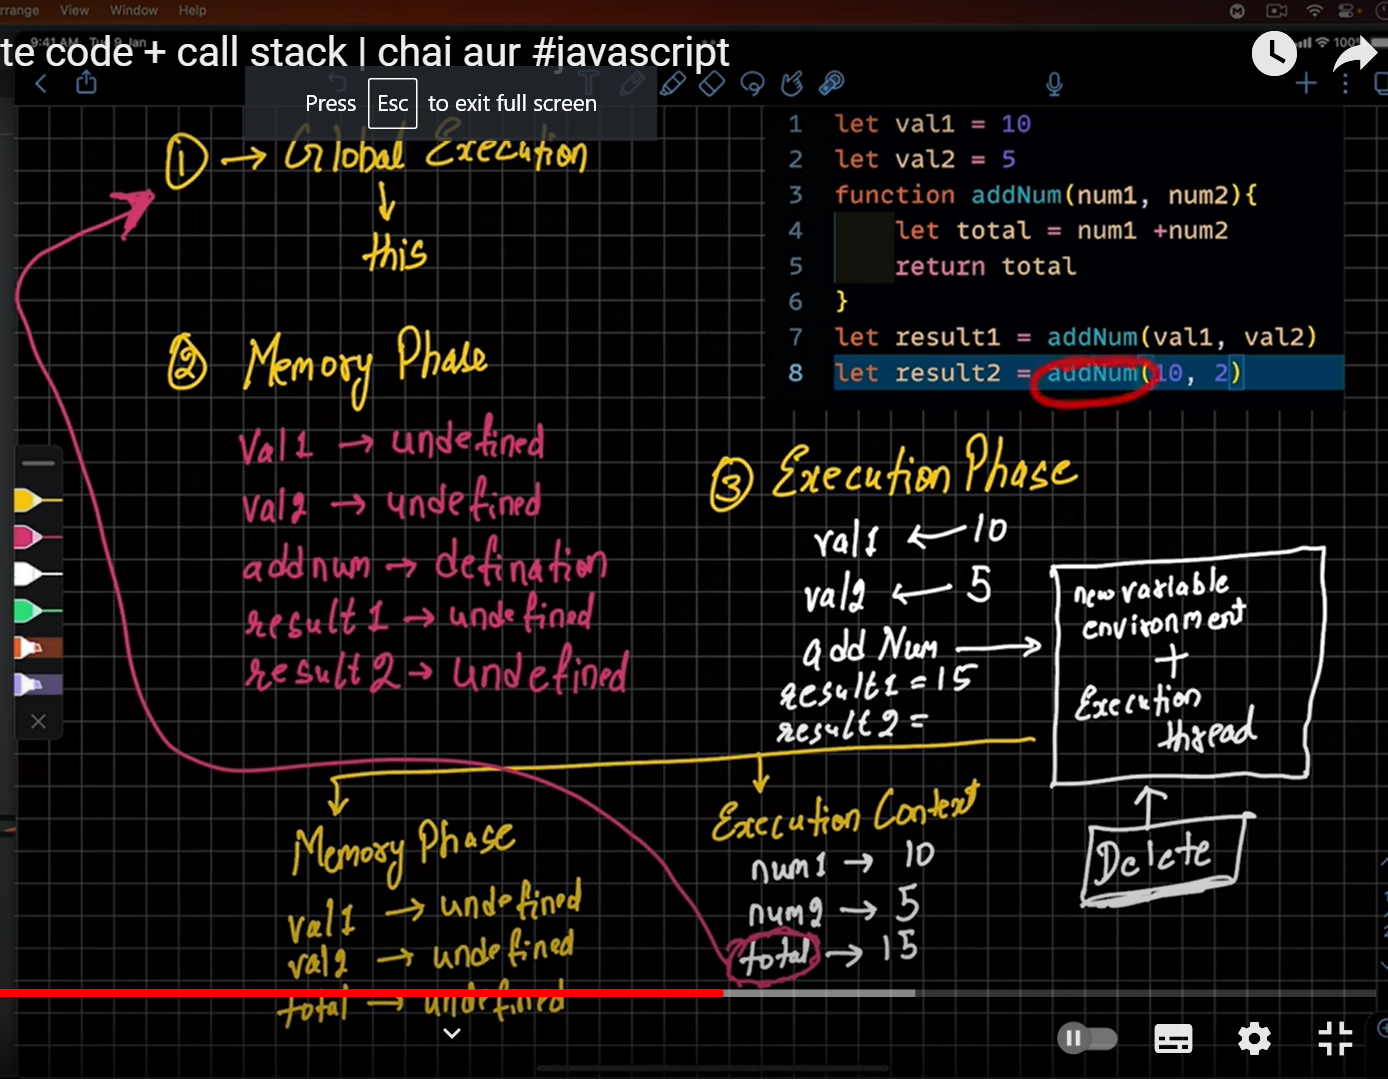 rrange View Window Help
9:41 AM Tue 9 Jan
100%
te code + call stack | chai aur #javascript
Press Esc to exit full screen
1 → Global Execution
this
2 Memory Phase
Val1 → undefined
val2 → undefined
addnum → defination
result1 → undefined
result2 → undefined
1 let val1 = 10
2 let val2 = 5
3 function addNum(num1, num2){
4 let total = num1 +num2
5 return total
6 }
7 let result1 = addNum(val1, val2)
8 let result2 = addNum(10, 2)
3 Execution Phase
val1 ← 10
val2 ← 5
add Num →
result1 = 15
result2 =
new variable
environment
+
Execution
thread
Delete
Memory Phase
val1 → undefined
val2 → undefined
total → undefined
Execution Context
num1 → 10
num2 → 5
total → 15